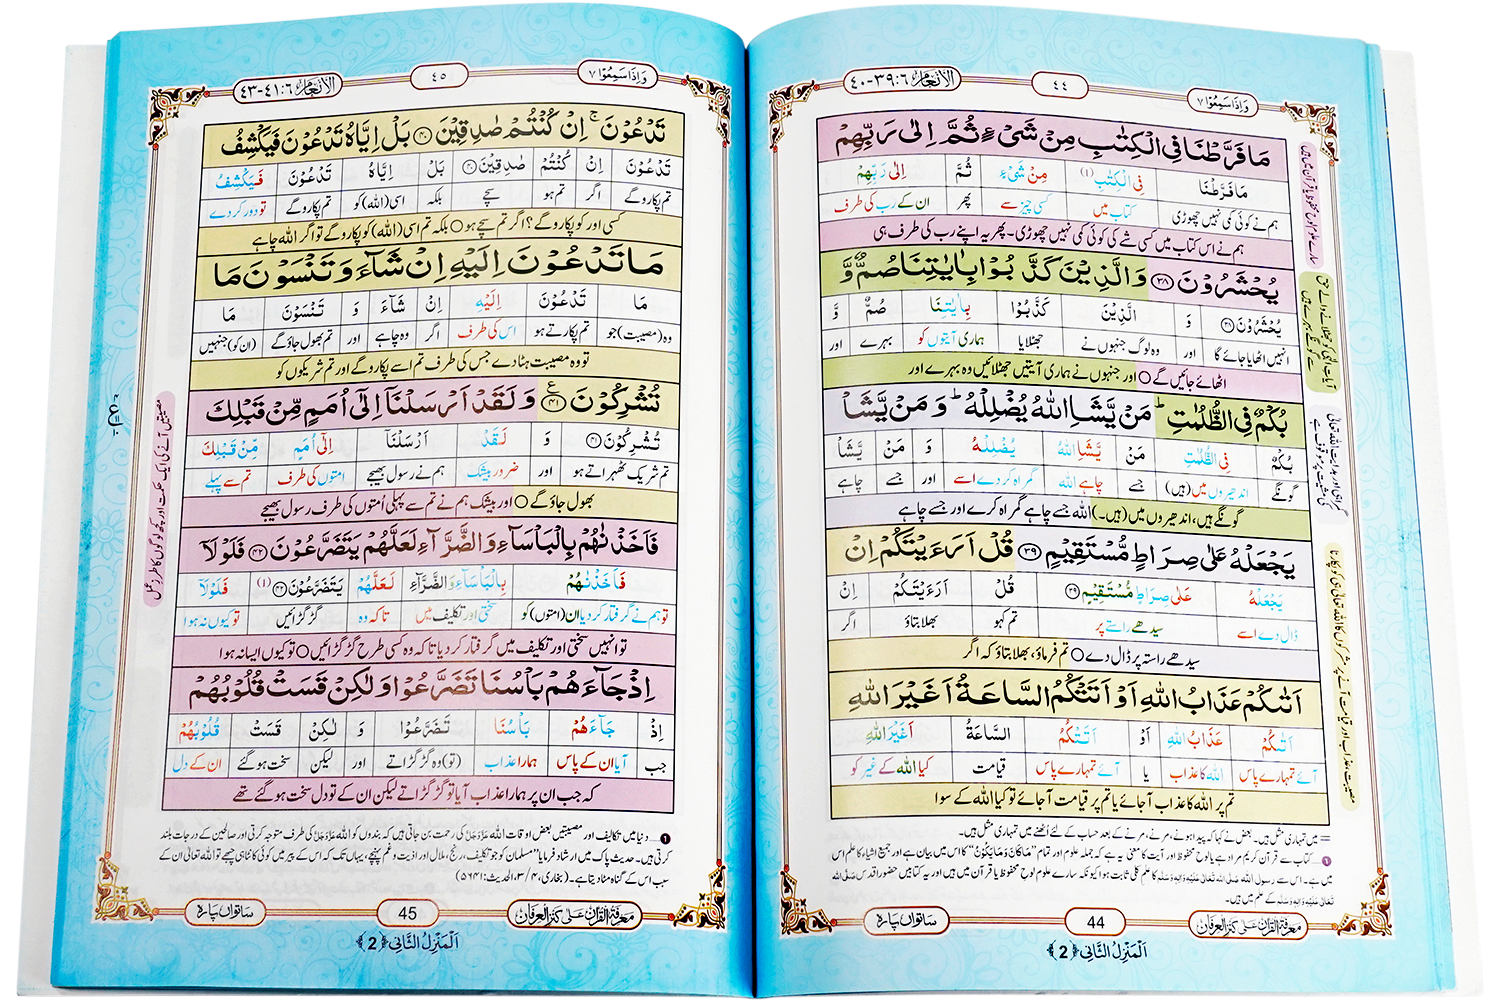 الانعام ٦:٣٩-٤٠
٤٤
وَاِذَا سَمِعُوْا ٧
مَا فَرَّطْنَا فِی الْكِتٰبِ مِنْ شَیْءٍ ثُمَّ اِلٰى رَبِّهِمْ
مَا فَرَّطْنَا فِی الْكِتٰبِ (۱) مِنْ شَیْءٍ ثُمَّ اِلٰى رَبِّهِمْ
ہم نے کوئی کمی نہیں چھوڑی کتاب میں کسی چیز سے پھر ان کے رب کی طرف
ہم نے اس کتاب میں کسی شے کی کوئی کمی نہیں چھوڑی۔ پھر یہ اپنے رب کی طرف ہی
یُحْشَرُوْنَ ﴿۳۸﴾ وَ الَّذِیْنَ كَذَّبُوْا بِاٰیٰتِنَا صُمٌّ وَّ
یُحْشَرُوْنَ ﴿۳۸﴾ وَ الَّذِیْنَ كَذَّبُوْا بِاٰیٰتِنَا صُمٌّ وَّ
انہیں اٹھایا جائے گا اور وہ لوگ جنہوں نے جھٹلایا ہماری آیتوں کو بہرے اور
اٹھائے جائیں گے ○ اور جنہوں نے ہماری آیتیں جھٹلائیں وہ بہرے اور
بُكْمٌ فِی الظُّلُمٰتِ ؕ مَنْ یَّشَاِ اللّٰهُ یُضْلِلْهُ ؕ وَ مَنْ یَّشَاْ
بُكْمٌ فِی الظُّلُمٰتِ مَنْ یَّشَاِ اللّٰهُ یُضْلِلْهُ وَ مَنْ یَّشَاْ
گونگے اندھیروں میں (ہیں) جسے چاہے اللہ گمراہ کر دے اسے اور جسے چاہے
گونگے ہیں، اندھیروں میں (ہیں۔) اللہ جسے چاہے گمراہ کرے اور جسے چاہے
یَجْعَلْهُ عَلٰى صِرَاطٍ مُّسْتَقِیْمٍ ﴿۳۹﴾ قُلْ اَرَءَیْتَكُمْ اِنْ
یَجْعَلْهُ عَلٰى صِرَاطٍ مُّسْتَقِیْمٍ ﴿۳۹﴾ قُلْ اَرَءَیْتَكُمْ اِنْ
ڈال دے اسے سیدھے راستے پر تم کہو بھلا بتاؤ اگر
سیدھے راستہ پر ڈال دے ○ تم فرماؤ، بھلا بتاؤ کہ اگر
اَتٰىكُمْ عَذَابُ اللّٰهِ اَوْ اَتَتْكُمُ السَّاعَةُ اَغَیْرَ اللّٰهِ
اَتٰىكُمْ عَذَابُ اللّٰهِ اَوْ اَتَتْكُمُ السَّاعَةُ اَغَیْرَ اللّٰهِ
آئے تمہارے پاس اللہ کا عذاب یا آئے تمہارے پاس قیامت کیا اللہ کے غیر کو
تم پر اللہ کا عذاب آجائے یا تم پر قیامت آجائے تو کیا اللہ کے سوا
= میں تمہاری مثل ہیں۔ بعض نے کہا کہ پیدا ہونے، مرنے، مرنے کے بعد حساب کے لئے اُٹھنے میں تمہاری مثل ہیں۔
سارے علوم لوح محفوظ یا قرآن میں ہیں
مصیبت، عذاب اور قیامت آنے پر مشرکوں کا اللہ تعالیٰ ہی کو پکارنا
معرفۃ القرآن علی کنز العرفان
44
ساتواں پارہ
اَلْمَنْزِلُ الثَّانِی ﴿2﴾
الانعام ٦:٤١-٤٣
٤٥
وَاِذَا سَمِعُوْا ٧
تَدْعُوْنَ ۚ اِنْ كُنْتُمْ صٰدِقِیْنَ ﴿۴۰﴾ بَلْ اِیَّاهُ تَدْعُوْنَ فَیَكْشِفُ
تَدْعُوْنَ اِنْ كُنْتُمْ صٰدِقِیْنَ ﴿۴۰﴾ بَلْ اِیَّاهُ تَدْعُوْنَ فَیَكْشِفُ
تم پکارو گے اگر تم ہو سچے بلکہ اسی (اللہ) کو تم پکارو گے تو دور کر دے
کسی اور کو پکارو گے؟ اگر تم سچے ہو ○ بلکہ تم اسی (اللہ) کو پکارو گے تو اگر اللہ چاہے
مَا تَدْعُوْنَ اِلَیْهِ اِنْ شَآءَ وَ تَنْسَوْنَ مَا
مَا تَدْعُوْنَ اِلَیْهِ اِنْ شَآءَ وَ تَنْسَوْنَ مَا
وہ (مصیبت) جو تم پکارتے ہو اس کی طرف اگر وہ چاہے اور تم بھول جاؤ گے (ان کو) جنہیں
تو وہ مصیبت ہٹا دے جس کی طرف تم اسے پکارو گے اور تم شریکوں کو
تُشْرِكُوْنَ ﴿۴۱﴾ وَ لَقَدْ اَرْسَلْنَاۤ اِلٰۤى اُمَمٍ مِّنْ قَبْلِكَ
تُشْرِكُوْنَ ﴿۴۱﴾ وَ لَقَدْ اَرْسَلْنَاۤ اِلٰۤى اُمَمٍ مِّنْ قَبْلِكَ
تم شریک ٹھہراتے ہو اور ضرور بیشک ہم نے رسول بھیجے امتوں کی طرف تم سے پہلے
بھول جاؤ گے ○ اور بیشک ہم نے تم سے پہلی اُمتوں کی طرف رسول بھیجے
فَاَخَذْنٰهُمْ بِالْبَاْسَآءِ وَالضَّرَّآءِ لَعَلَّهُمْ یَتَضَرَّعُوْنَ ﴿۴۲﴾ فَلَوْلَاۤ
فَاَخَذْنٰهُمْ بِالْبَاْسَآءِ وَالضَّرَّآءِ لَعَلَّهُمْ یَتَضَرَّعُوْنَ ﴿۴۲﴾ (۱) فَلَوْلَاۤ
تو ہم نے گرفتار کر دیا ان (امتوں) کو سختی اور تکلیف میں تاکہ وہ گڑگڑائیں تو کیوں نہ ہوا
تو انہیں سختی اور تکلیف میں گرفتار کر دیا تاکہ وہ کسی طرح گڑگڑائیں ○ تو کیوں ایسا نہ ہوا
اِذْ جَآءَهُمْ بَاْسُنَا تَضَرَّعُوْا وَ لٰكِنْ قَسَتْ قُلُوْبُهُمْ
اِذْ جَآءَهُمْ بَاْسُنَا تَضَرَّعُوْا وَ لٰكِنْ قَسَتْ قُلُوْبُهُمْ
جب آیا ان کے پاس ہمارا عذاب (تو) وہ گڑگڑاتے اور لیکن سخت ہو گئے ان کے دل
کہ جب ان پر ہمارا عذاب آیا تو گڑگڑاتے لیکن ان کے تو دل سخت ہو گئے تھے
۱ ... دنیا میں تکالیف اور مصیبتیں بعض اوقات اللہ عَزَّوَجَلَّ کی رحمت بن جاتی ہیں کہ بندوں کو اللہ عَزَّوَجَلَّ کی طرف متوجہ کرتی اور صالحین کے درجات بلند
کرتی ہیں۔ حدیث پاک میں ارشاد فرمایا "مسلمان کو جو تکلیف، رنج، ملال اور اذیت و غم پہنچے، یہاں تک کہ اس کے پیر میں کوئی کانٹا ہی چبھے تو اللہ تعالیٰ ان کے
سبب اس کے گناہ مٹا دیتا ہے۔ (بخاری، ۴/۳، الحدیث: ۵۶۴۱)
معرفۃ القرآن علی کنز العرفان
45
ساتواں پارہ
اَلْمَنْزِلُ الثَّانِی ﴿2﴾